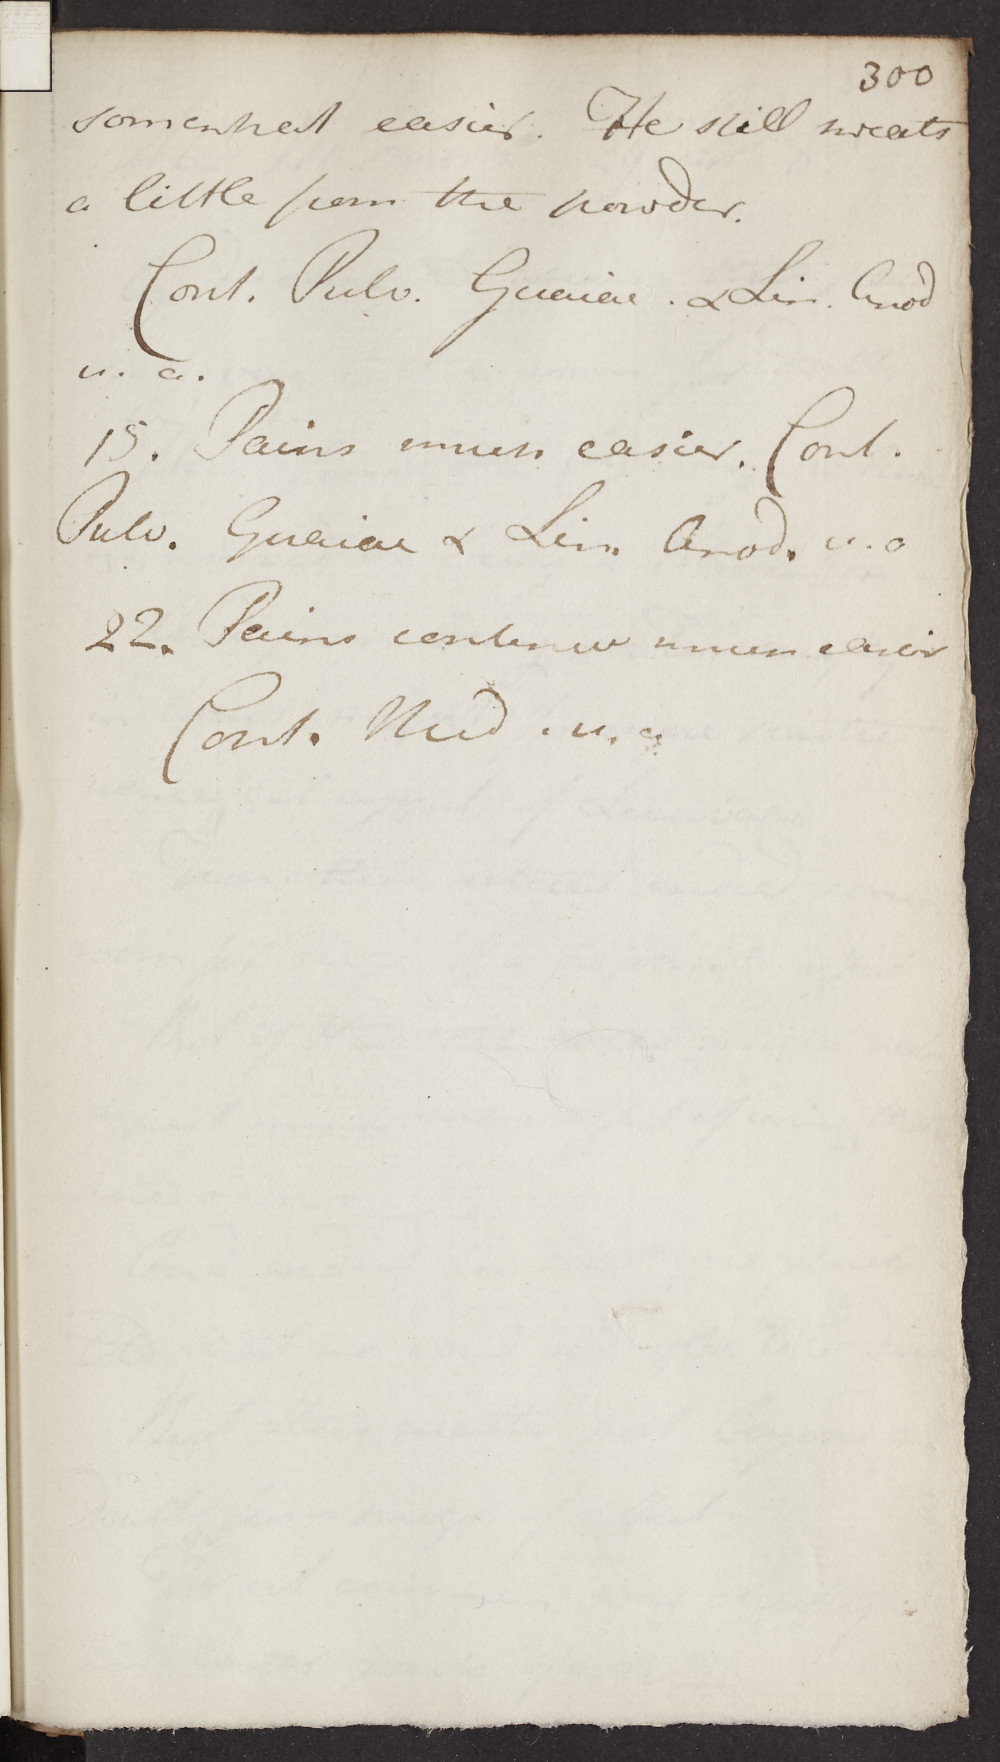 300
somewhat easier. He still sweats
a little from the powder.
Cont. Pulv. Guaiac. & Lin. Anod
u. a.
15. Pains much easier. Cont.
Pulv. Guaiac & Lin. Anod. u. a
22. Pains continue much easier
Cont. Med. u. a